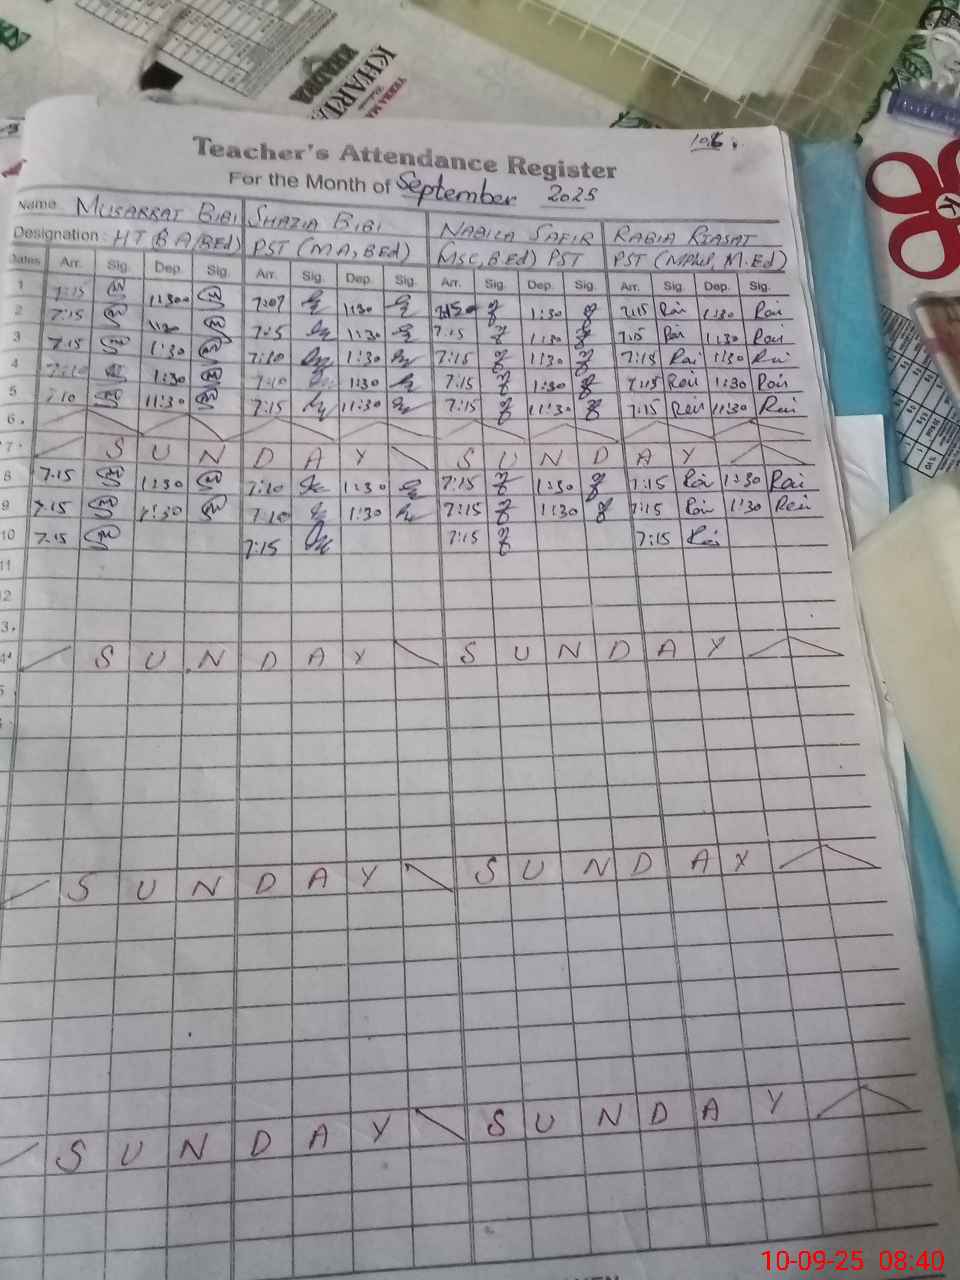 KHARI
KHADDA
106
Teacher's Attendance Register
For the Month of September 2025
Name. MUSARRAT BIBI SHAZIA BIBI NABILA SAFIR RABIA RIASAT
Designation: HT (B A/BEd) PST (MA, BEd) MSc, B.Ed) PST PST (MPhil, M.Ed)
Dates Arr. Sig. Dep. Sig. Arr. Sig. Dep. Sig. Arr. Sig. Dep. Sig. Arr. Sig. Dep. Sig.
1 7:15 1:30 7:07 1:30 1:30 7:15 Rai 1:30 Rai
2 7:15 7:15 1:30 7:15 1:30 7:15 Rai 1:30 Rai
3 7:15 1:30 7:10 1:30 7:15 1:30 7:15 Rai 1:30 Rai
4 7:10 1:30 7:10 1:30 7:15 1:30 7:15 Rai 1:30 Rai
5 7:10 1:30 7:15 1:30 7:15 1:30 7:15 Rai 1:30 Rai
6.
7. S U N D A Y S U N D A Y
8 7:15 1:30 7:10 1:30 7:15 1:30 7:15 Rai 1:30 Rai
9 7:15 1:30 7:10 1:30 7:15 1:30 7:15 Rai 1:30 Rai
10 7:15 7:15 7:15 7:15 Rai
11
2
3.
4 S U N D A Y S U N D A Y
5
S U N D A Y S U N D A Y
S U N D A Y S U N D A Y
10-09-25 08:40